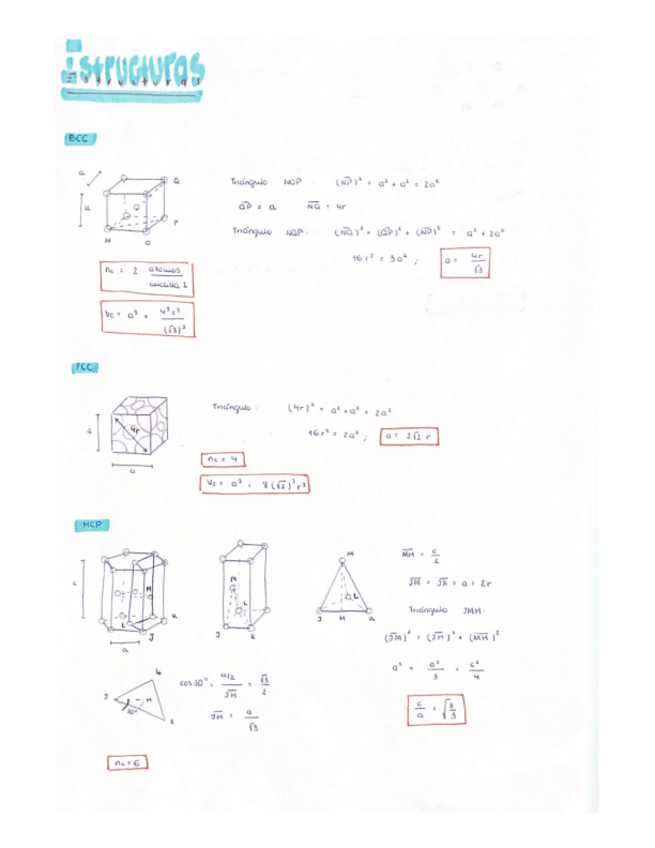 Estructuras
Estructuras
BCC
a
Q
a
P
N
O
Triángulo NOP : (N̅P̅)² = a² + a² = 2a²
Q̅P̅ = a N̅Q̅ = 4r
Triángulo NQP : (N̅Q̅)² = (Q̅P̅)² + (N̅P̅)² = a² + 2a²
16r² = 3a² ; a = 4r/√3
nc = 2 átomos
Vc = a³ = 4³r³/(√3)³
FCC
a
4r
a
Triángulo : (4r)² = a² + a² = 2a²
16r² = 2a² ; a = 2√2 r
nc = 4
Vc = a³ = 8(√2)³r³
HCP
c
M
L
K
J
a
M
L
J
K
M
L
J
H
K
M̅H̅ = c/2
J̅M̅ = J̅K̅ = a = 2r
Triángulo JMH :
(J̅M̅)² = (J̅H̅)² + (M̅H̅)²
a² = a²/3 + c²/4
c/a = √8/3
J
H
30°
cos 30° = a/2 / J̅H̅ = √3/2
J̅H̅ = a/√3
nc = 6